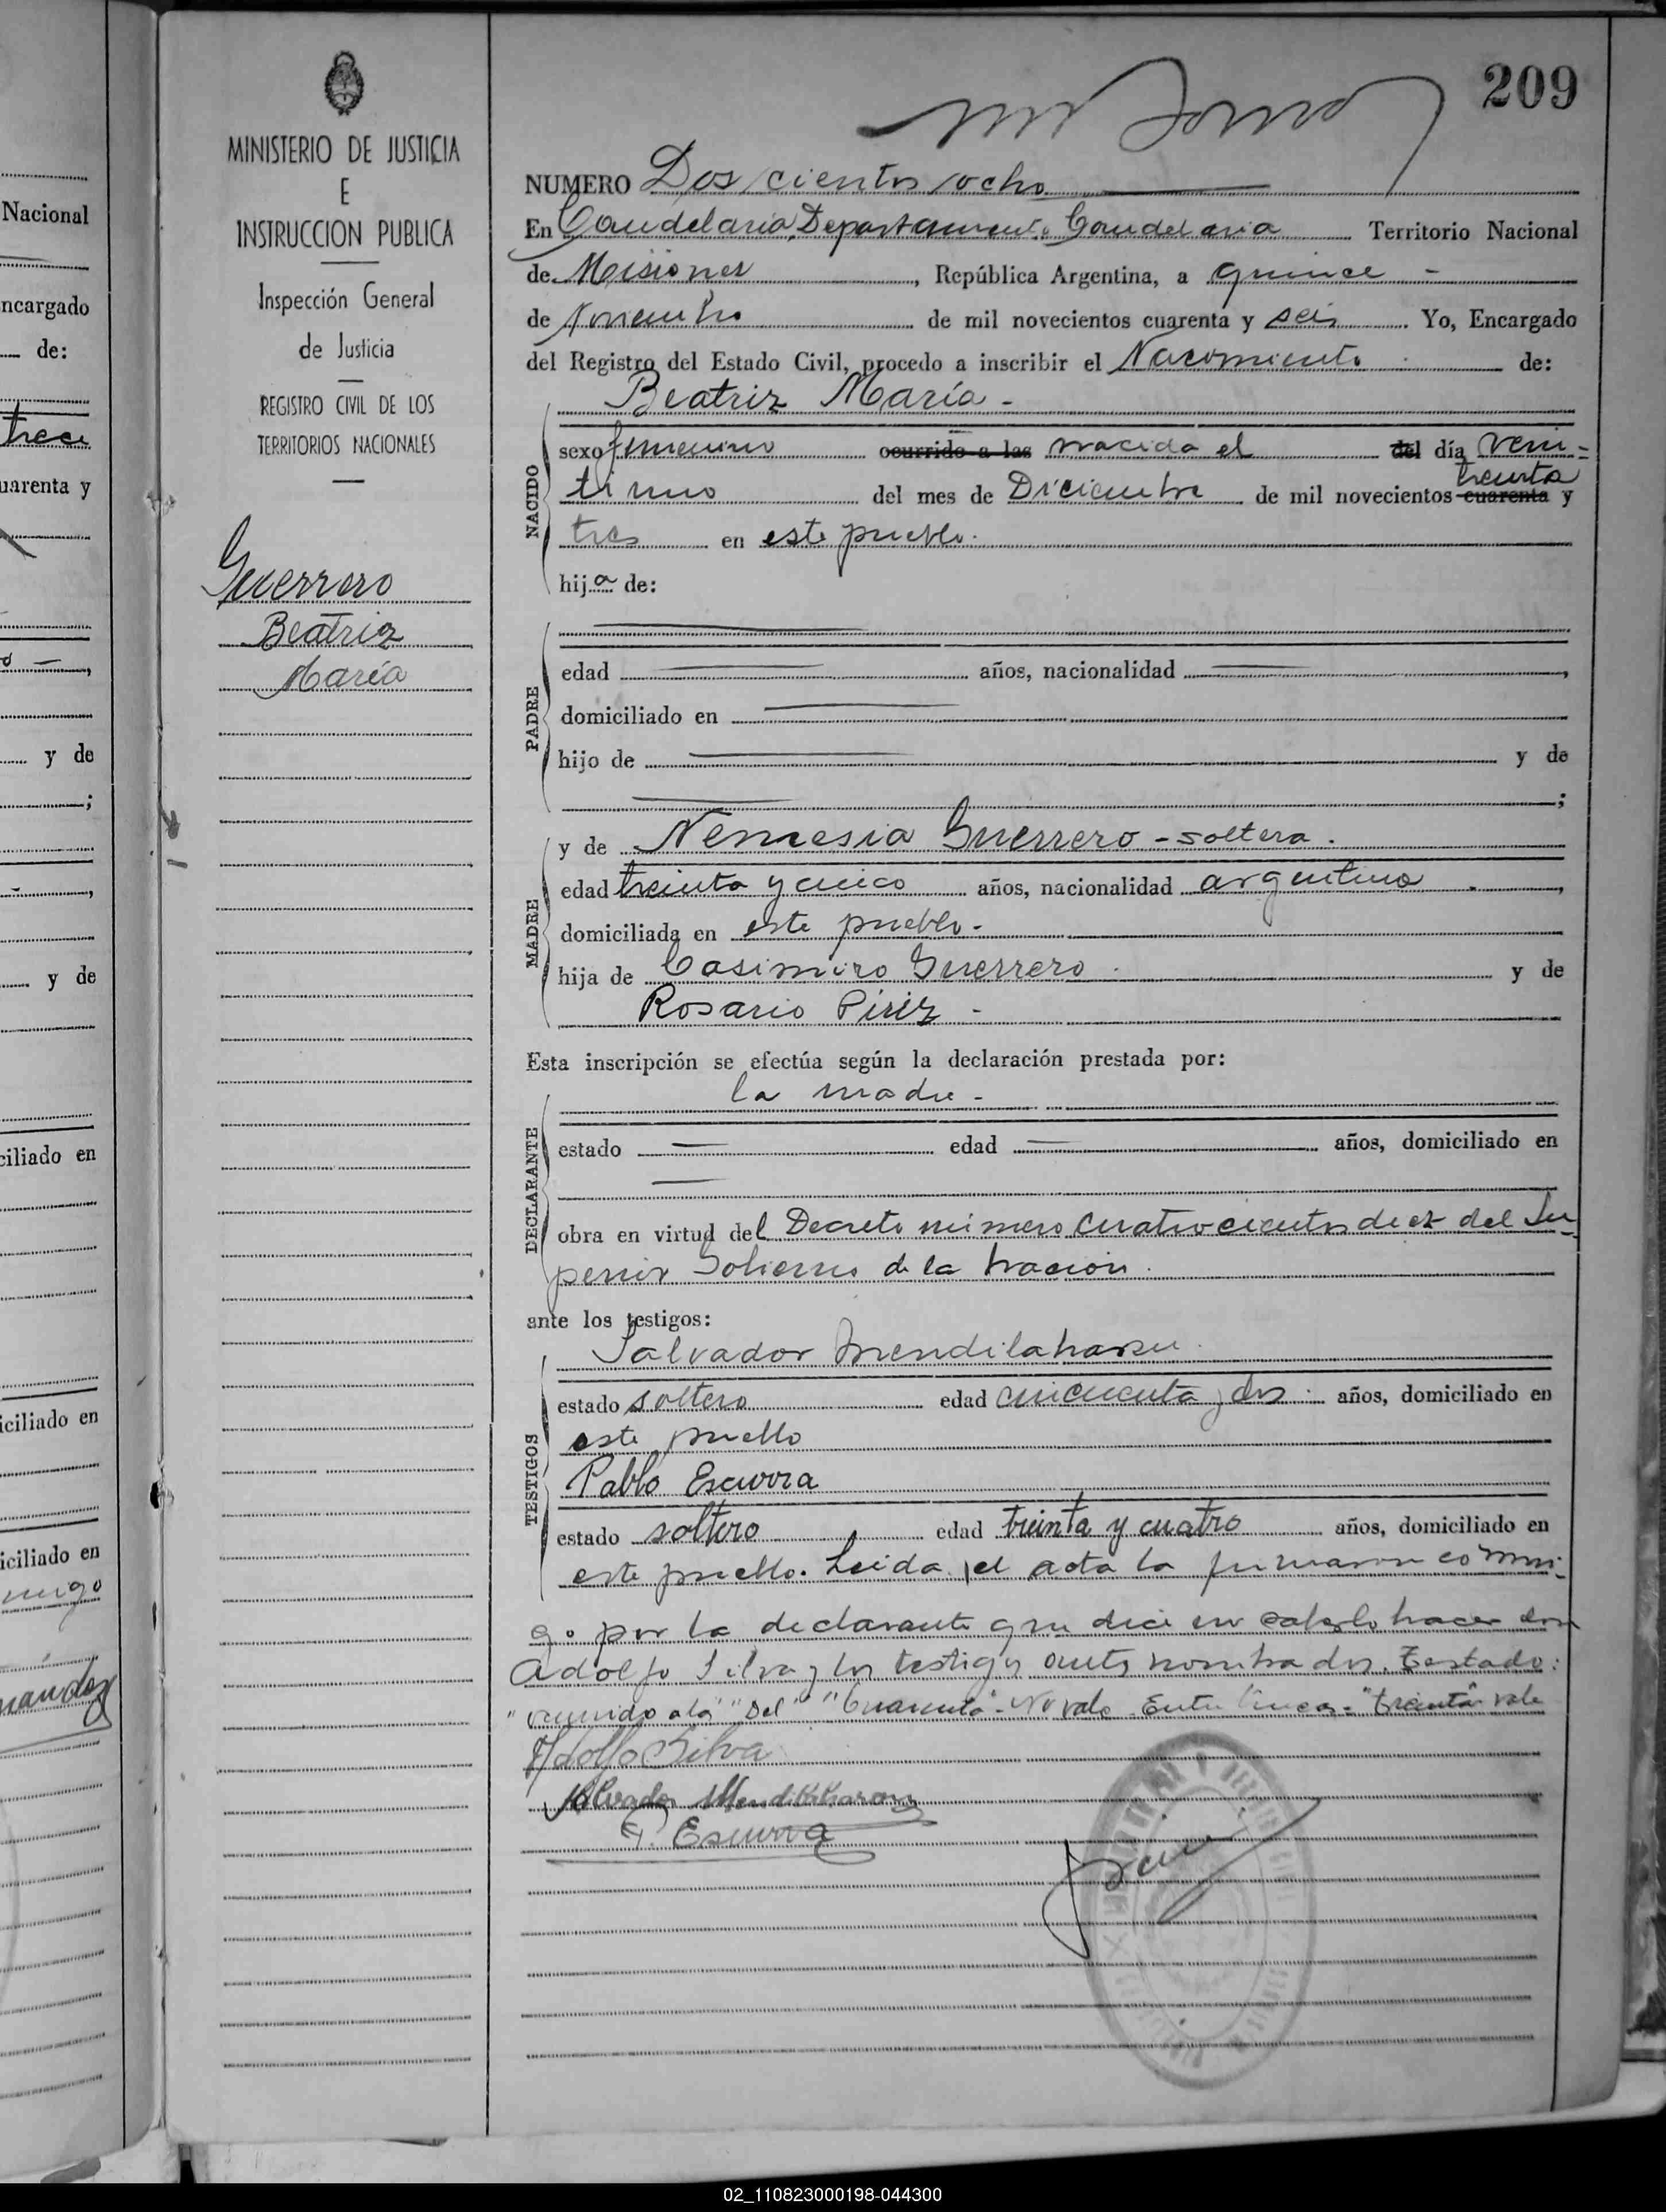 209
MINISTERIO DE JUSTICIA
E
INSTRUCCION PUBLICA
Inspección General
de Justicia
REGISTRO CIVIL DE LOS
TERRITORIOS NACIONALES
Guerrero
Beatriz
María
NUMERO Doscientos ocho
En Candelaria, Departamento Candelaria Territorio Nacional
de Misiones, República Argentina, a quince -
de Noviembre de mil novecientos cuarenta y seis Yo, Encargado
del Registro del Estado Civil, procedo a inscribir el Nacimiento de:
Beatriz María -
NACIDO
sexo femenino ocurrido a las nacida el del día veni-
tiuno del mes de Diciembre de mil novecientos cuarenta treinta y
tres en este pueblo.
hija de:
PADRE
edad años, nacionalidad ,
domiciliado en
hijo de y de
;
MADRE
y de Nemesia Guerrero - soltera.
edad treinta y cinco años, nacionalidad argentina ,
domiciliada en este pueblo.-
hija de Casimiro Guerrero y de
Rosario Piriz -
Esta inscripción se efectúa según la declaración prestada por:
la madre -
DECLARANTE
estado edad años, domiciliado en
obra en virtud del Decreto número cuatrocientos diez del Su-
perior Gobierno de la nación.
ante los testigos:
TESTIGOS
Salvador Mendilaharsu
estado soltero edad cincuenta y dos años, domiciliado en
este pueblo
Pablo Escurra
estado soltero edad treinta y cuatro años, domiciliado en
este pueblo. Leida el acta la firmaron conmi-
go por la declarante que dice no saberlo hacer don
Adolfo Silva y los testigos antes nombrados. Testado:
"ocurrido a las" "del" "Cuarenta" - No vale. Entre lineas - "treinta" vale
Adolfo Silva
Salvador Mendilaharsu
P. Escurra
Nacional
encargado
de:
trece
cuarenta y
y de
;
y de
ciliado en
iciliado en
iciliado en
02_110823000198-044300